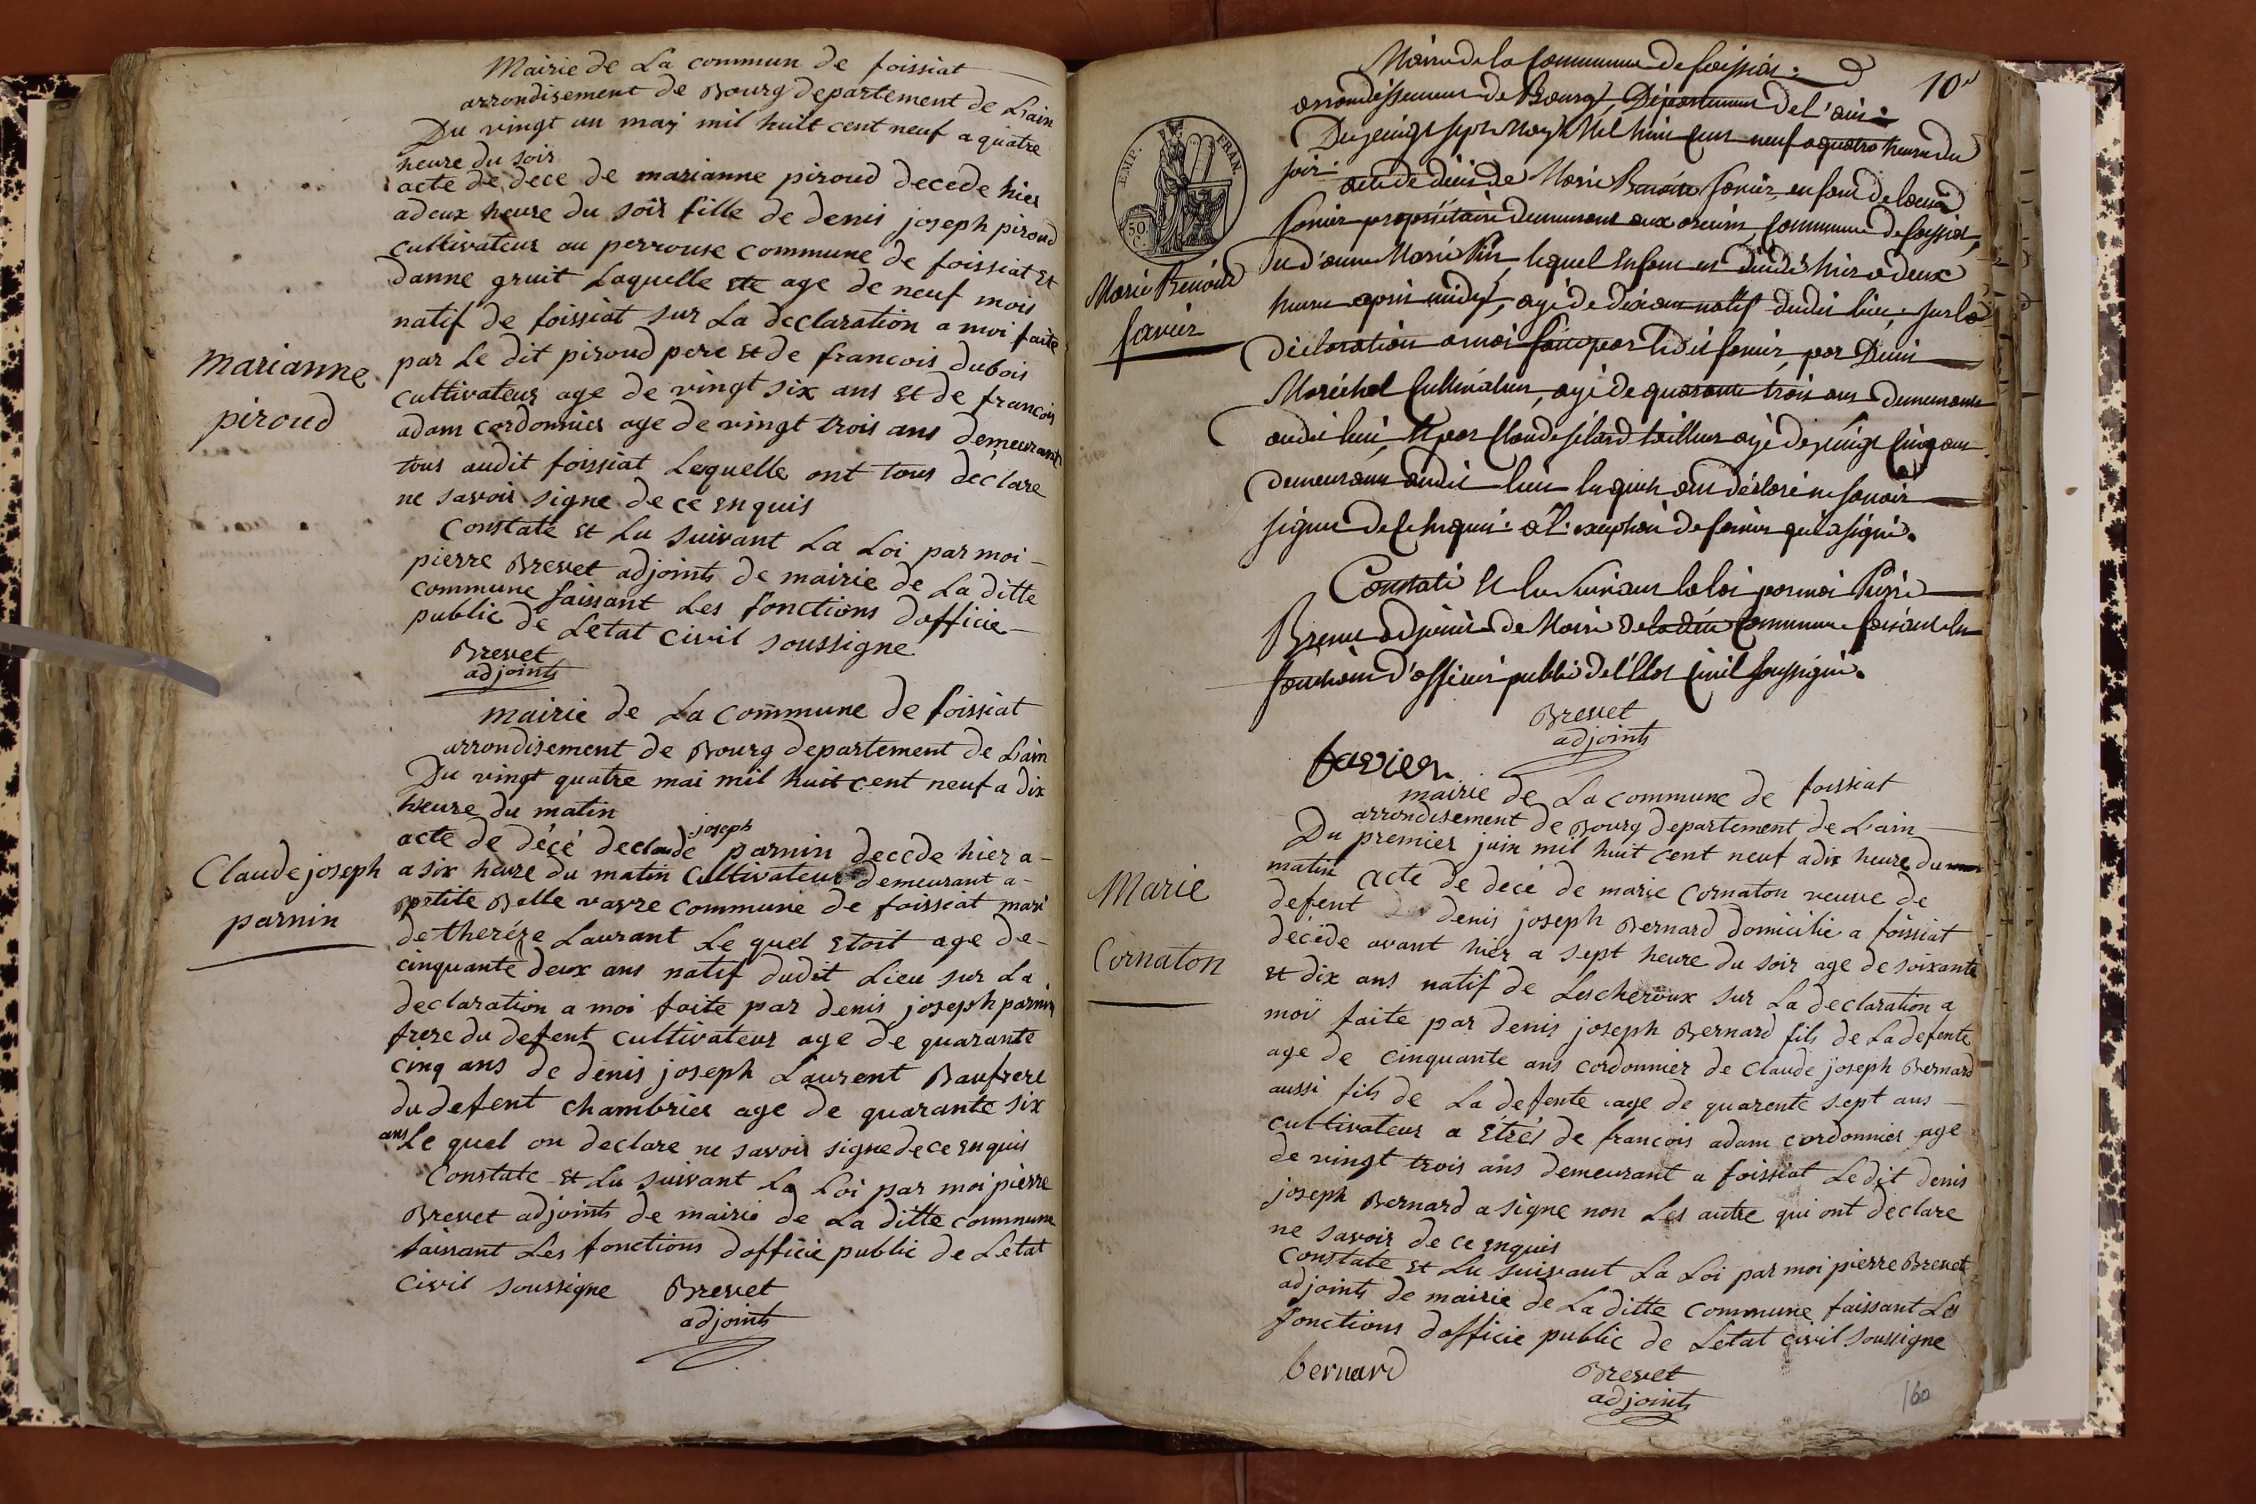 Mairie de La commun de foissiat
arrondisement de Bourg departement de Lain
Du vingt un may mil huit cent neuf a quatre
heure du soir
acte de dece de marianne piroud decede hier
adeux heure du soir fille de denis joseph piroud
cultivateur au perrouse commune de foissiat Et
danne gruit Laquelle Ete age de neuf mois
natif de foissiat sur La declaration a moi faite
Marianne
par Le dit piroud pere Et de francois dubois
cultivateur age de vingt six ans Et de francois
piroud
adam cordonnier age de vingt trois ans demeurant
tous audit foissiat Lesquelle ont tous declare
ne savoir signe de ce Enquis
Constate Et Lu suivant La Loi par moi
pierre Brevet adjoints de mairie de La ditte
commune faissant Les fonctions dofficie
public de Letat civil soussigne
Brevet
adjoints
mairie de La commune de foissiat
arrondisement de Bourg departement de Lain
Du vingt quatre mai mil huit cent neuf a dix
heure du matin
joseph
acte de décé declaude parnin decede hier a
Claude joseph
a six heure du matin Cultivateur demeurant a
parnin
petite Belle vavre commune de foissiat mari
de theréze Laurant Le quel Etoit age de
cinquante deux ans natif dudit Lieu sur La
declaration a moi faite par denis joseph parnin
frere du defent cultivateur age de quarante
cinq ans de denis joseph Laurent Baufrere
du defent chambrier age de quarante six
ans Le quel on declare ne savoir signe de ce Enquis
Constate Et Lu suivant La Loi par moi pierre
Brevet adjoints de mairie de La ditte commune
faissant Les fonctions dofficie public de Letat
civil soussigne Brevet
adjoints
10
Mairie de la Commune de foissiat
arrondissement de Bourg, Département de l'ain
Du vingt sept May Mil huit Cent neuf a quatre heure du
soir
EMP. FRAN.
50 C.
acte de décès de Marie Benoite favier, enfant de
favier propriétaire demeurant aux Commune de foissiat,
et d'anne Marie lequel Enfant est décédé hier a deux
Marie Benoite
favier
heure après midy, agé de dix ans natif dudit lieu, sur la
Déclaration a moi faite par ledit favier, par Denis
Maréchal Cultivateur, agé de quarante trois ans Demeurant
audit lieu, Et par Claude tailleur agé de vingt Cinq ans
demeurant audit lieu lesquels ont déclaré ne savoir
signer De Ce Enquis à l'exception de favier qui a signé.
Constaté Et lu suivant la loi par moi Pierre
Brevet adjoint de Mairie de la dite Commune faisant les
fonctions d'officier public de l'Etat Civil soussigné.
Brevet
adjoints
favier
mairie de La commune de foissiat
arrondisement de Bourg departement de Lain
Du premier juin mil huit cent neuf adix heure du
matin acte de decé de marie Cornaton veuve de
Marie
defent denis joseph Bernard domicilie a foissiat
décéde avant hier a sept heure du soir age de soixante
Cornaton
Et dix ans natif de Lescheroux sur La declaration a
moi faite par denis joseph Bernard fils de La defente
age de cinquante ans cordonnier de Claude joseph Bernard
aussi fils de La defente age de quarente sept ans
cultivateur a Etrés de francois adam cordonnier age
de vingt trois ans demeurant a foissiat Ledit denis
joseph Bernard a signe non Les autre qui ont declare
ne savoir de ce Enquis
Constate Et Lu suivant La Loi par moi pierre Brevet
adjoints de mairie de La ditte commune faissant Les
fonctions dofficie public de Letat civil soussigne
bernard Brevet
adjoints
160